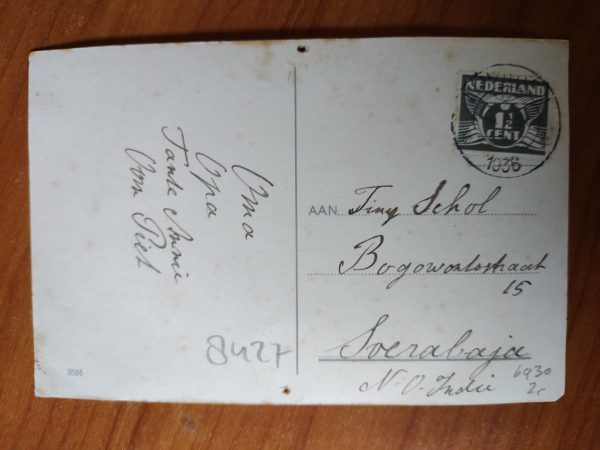 Oma
Opa
Tante Annie
Oom Piet
8427
3555
NEDERLAND
1½
CENT
1936
AAN Tiny Schol
Bogowontostraat
15
Soerabaja
N.O. Indie
6930
2c